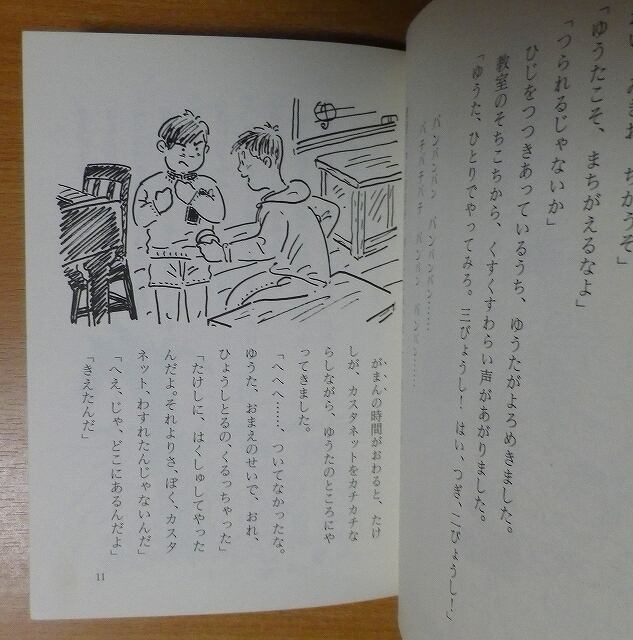 ちがうぞ」
「ゆうたこそ、まちがえるなよ」
「つられるじゃないか」
ひじをつつきあっているうち、ゆうたがよろめきました。
教室のそちこちから、くすくすわらい声があがりました。
「ゆうた、ひとりでやってみろ。三びょうし! はい、つぎ、二びょうし!」
パンパンパン パンパンパン……
パチパチパチ パンパン パンパン……
がまんの時間がおわると、たけ
しが、カスタネットをカチカチな
らしながら、ゆうたのところにや
ってきました。
「へへへ……、ついてなかったな。
ゆうた、おまえのせいで、おれ、
ひょうしとるの、くるっちゃった」
「たけしに、はくしゅしてやった
んだよ。それよりさ、ぼく、カスタ
ネット、わすれたんじゃないんだ」
「へえ、じゃ、どこにあるんだよ」
「きえたんだ」
11